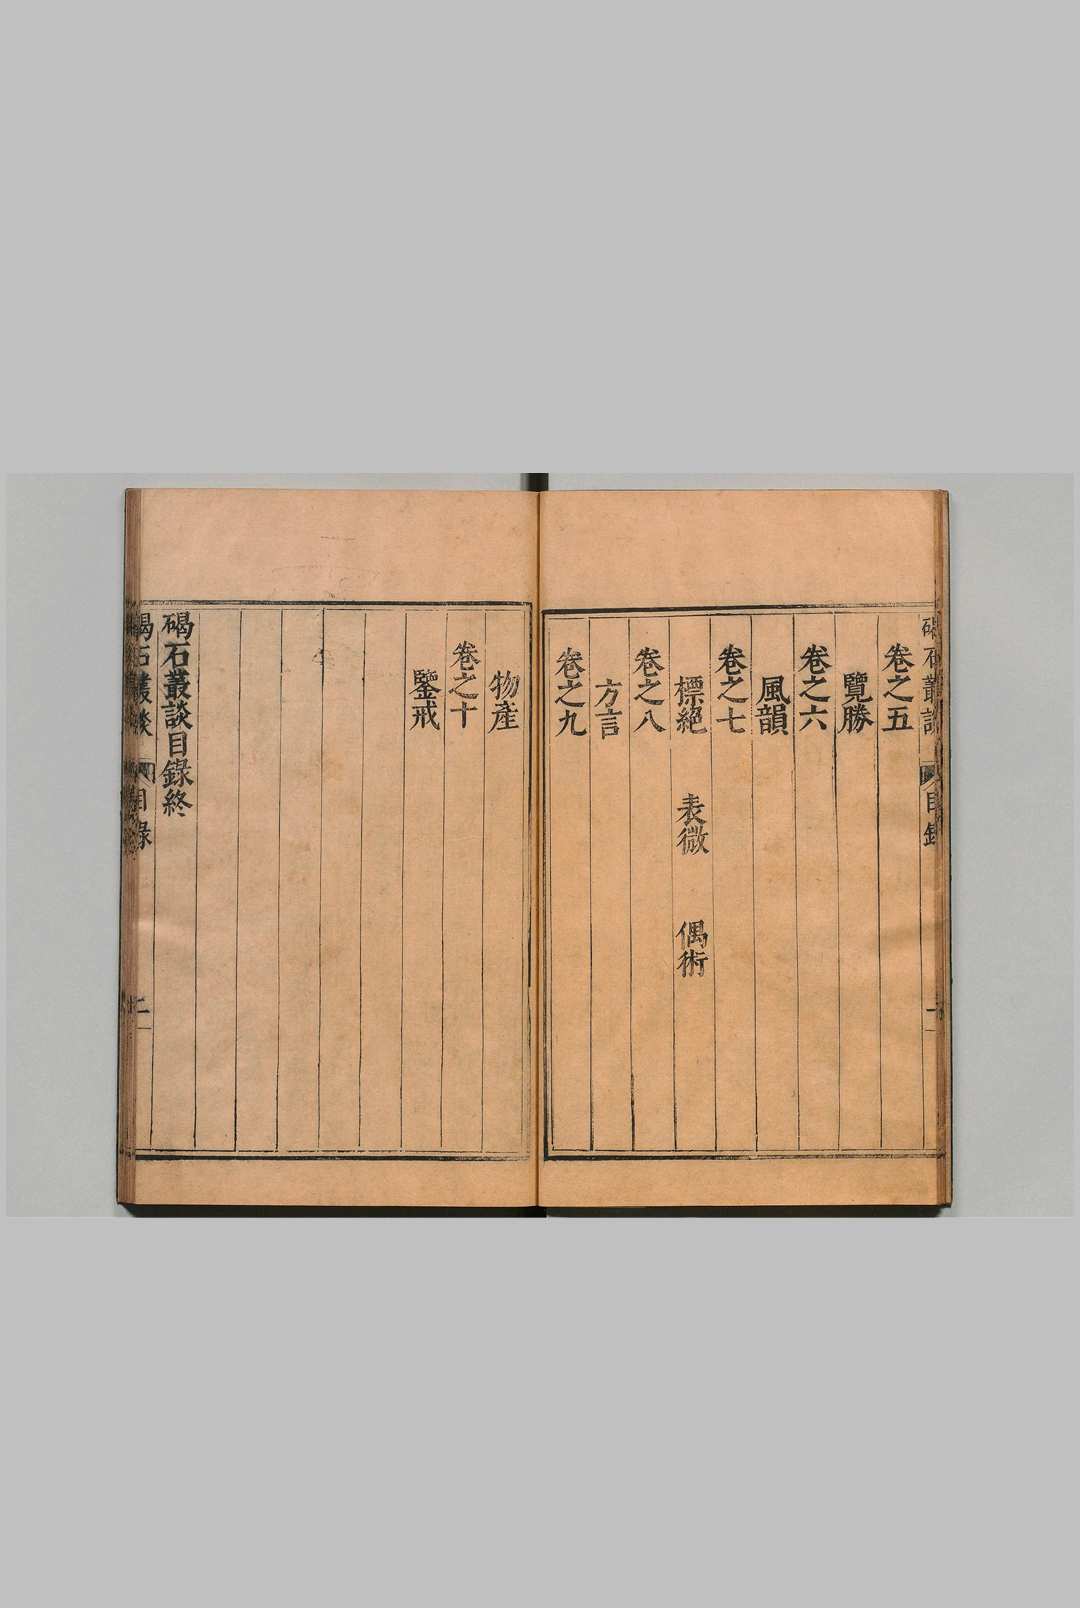 碣石叢談 目錄 一
卷之五
覽勝
卷之六
風韻
卷之七
標絕 表微 偶術
卷之八
方言
卷之九
物產
卷之十
鑒戒
碣石叢談目錄終
碣石叢談 目錄 二